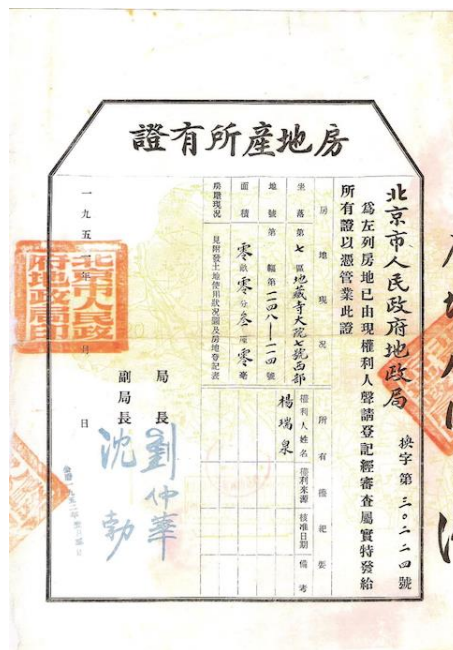 房地產所有證
北京市人民政府地政局
換字第三〇二二四號
爲左列房地已由現權利人聲請登記經審查屬實特發給
所有證以憑管業此證
房地現況
坐落 第七區地藏寺大院七號西部
地號 第 幅第一四八—一一四號
面積 零畝零分叁厘零毫
房屋現況 見附發土地使用狀況圖及房地登記表
所有權紀要
權利人姓名 權利來源 核准日期 備考
楊瑞泉
局長 劉仲華
副局長 沈勃
一九五 年 月 日
北京市人民政
府地政局印